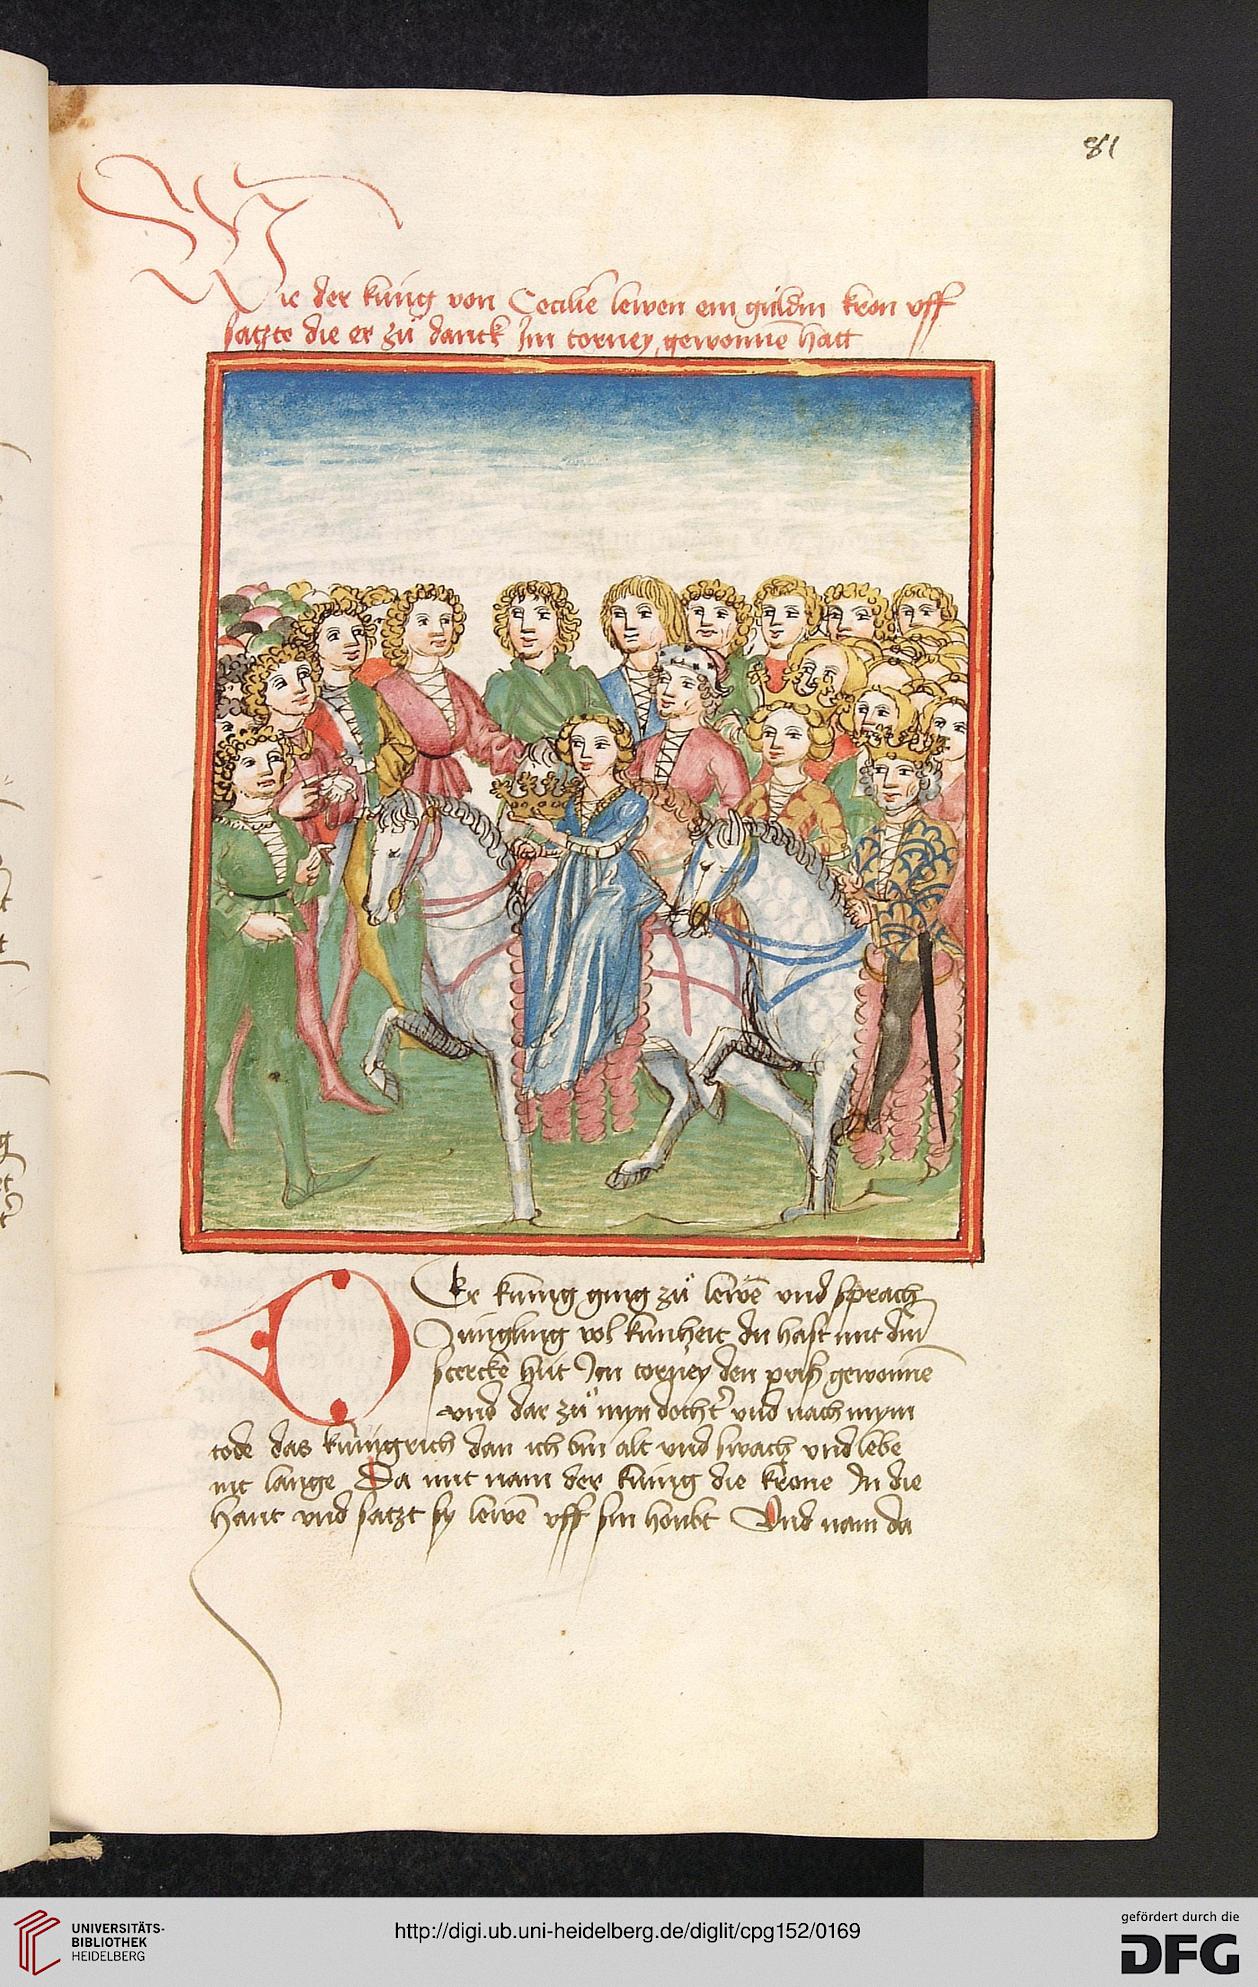 81
Wie der kunig von Cecilie lewen ein guldin kron uff
satzte die er zu danck Im torney gewonnē hatt
Der kunig ging zů lewē und sprach
Jungling vol kunheit du hast mit din̄
stercke hut Im torney den priß gewonnē
und dar zů myn docht' und nach mym
tode das kunigrich dan ich bin alt und swach und lebe
nit lange Da mit nam der kunig die krone In die
hant und satzt sy lewē uff sin houbt Und nam da
UNIVERSITÄTS-
BIBLIOTHEK
HEIDELBERG
http://digi.ub.uni-heidelberg.de/diglit/cpg152/0169
gefördert durch die
DFG